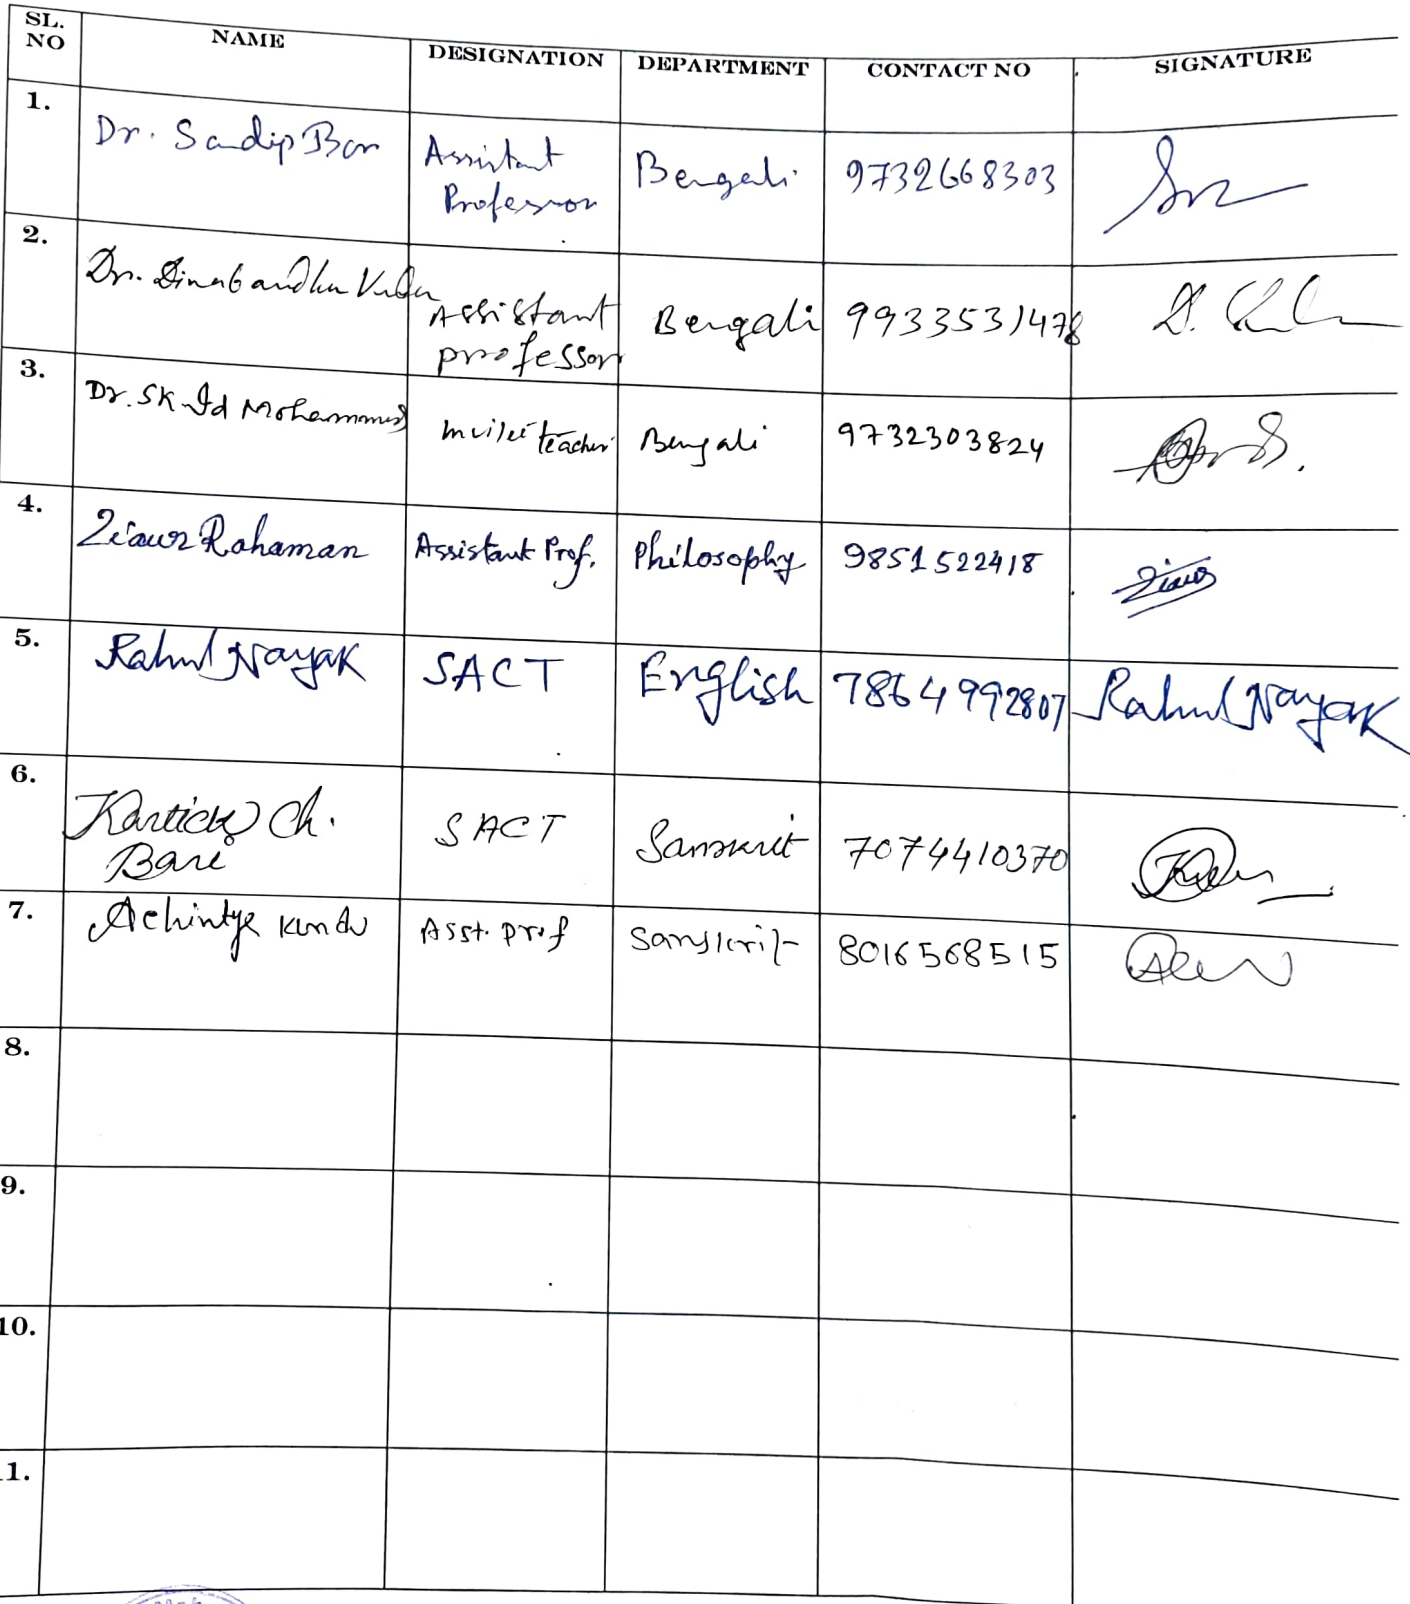 SL. NO NAME DESIGNATION DEPARTMENT CONTACT NO SIGNATURE
1. Dr. Sandip Bar Assistant Professor Bengali 9732668303
2. Dr. Dinabandhu Assistant professor Bengali 9933531478
3. Dr. SK Id Mohammad teacher Bengali 9732303824
4. Ziaur Rahaman Assistant Prof. Philosophy 9851522418 Ziaur
5. Rahul Nayak SACT English 7864992807 Rahul Nayak
6. Kartick Ch. Bari SACT Sanskrit 7074410370
7. Achintya Kundu Asst. prof Sanskrit 8016568515
8.
9.
10.
1.